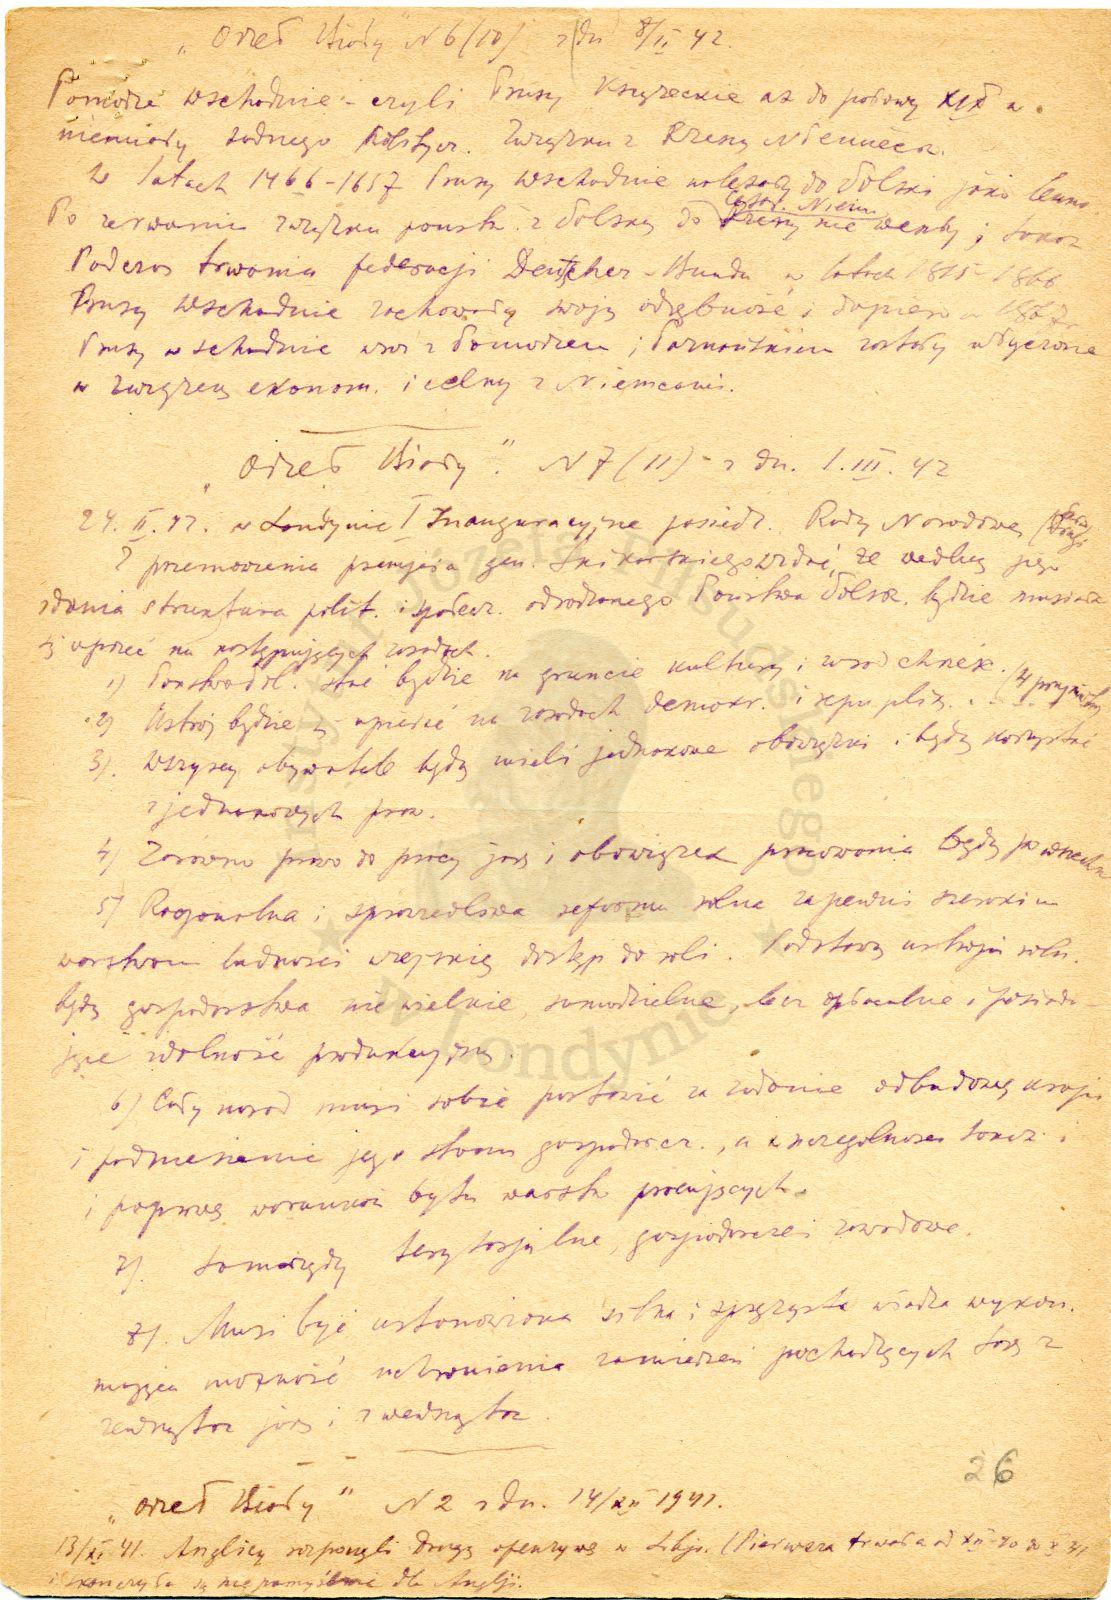 „Orzeł Biały" N 6 (10) z dn 8/II 42.
Pomorze wschodnie - czyli Prusy Książęckie aż do połowy XIX w.
niemiały żadnego politycz. związku z Rzeszą Niemiecк.
W latach 1466-1657 Prusy wschodnie należały do Polski jako lenno.
Po zerwaniu związku państw. z Polską do Rzeszy nie weszły i
Podczas trwania federacji Deutscher-Bundu w latach 1815-1866
Prusy wschodnie zachowały swoją odrębność i dopiero w 1867
Prusy wschodnie wraz z Pomorzem i Poznańskiem zostały włączone
w związek ekonom. i celny z Niemcami.
„Orzeł Biały". N 7 (11) - z dn. 1.III.42
24.II.42. w Londynie I Inauguracyjne posiedz. Rady Narodowej
Z przemówienia premjera gen. Sikorskiego widać, że według jego
zdania struktura polit. i społecz. odrodzonego Państwa Polsk. będzie musiała
się oprzeć na następujących zasadach.
1) Państwo Pol. stać będzie na gruncie kultury i zasad chrześc.
2) Ustrój będzie się opierać na zasadach demokr. i republik.
3). Wszyscy obywatele będą mieli jednakowe obowiązki i będą korzystać
z jednakowych praw.
4) Zarówno prawo do pracy jak i obowiązek pracowania będą powszechne
5) Racjonalna i sprawiedliwa reforma rolna zapewni szerokim
warstwom ludności wiejskiej dostęp do roli. Podstawą ustroju roln.
będą gospodarstwa niewielkie, samodzielne, lecz opłacalne i posiada-
jące zdolność produkcyjną.
6) Cały naród musi sobie postawić za zadanie odbudowę kraju
i podniesienie jego stanu gospodarcz., a w szczególności
i poprawę warunków bytu warstw pracujących.
7). Samorządy terytorjalne, gospodarcze i zawodowe.
8). Musi być ustanowiona silna i sprężysta władza wykon.
mająca możność uchronienia zamierzeń pochodzących tak z
zewnątrz jak i z wewnątrz.
26
„Orzeł Biały" N 2 z dn. 14/XII 1941.
13/XI 41. Anglicy rozpoczęli drugą ofenzywę w Libji. (Pierwsza trwała od XII-40
skończyła się niepomyślnie dla Anglji.
Józefa Piłsudskiego
w Londynie